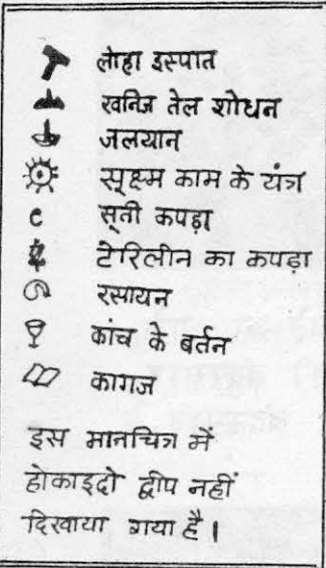 लोहा इस्पात
खनिज तेल शोधन
जलयान
सूक्ष्म काम के यंत्र
सूती कपड़ा
टेरिलीन का कपड़ा
रसायन
कांच के बर्तन
कागज
इस मानचित्र में
होकाइदो द्वीप नहीं
दिखाया गया है।